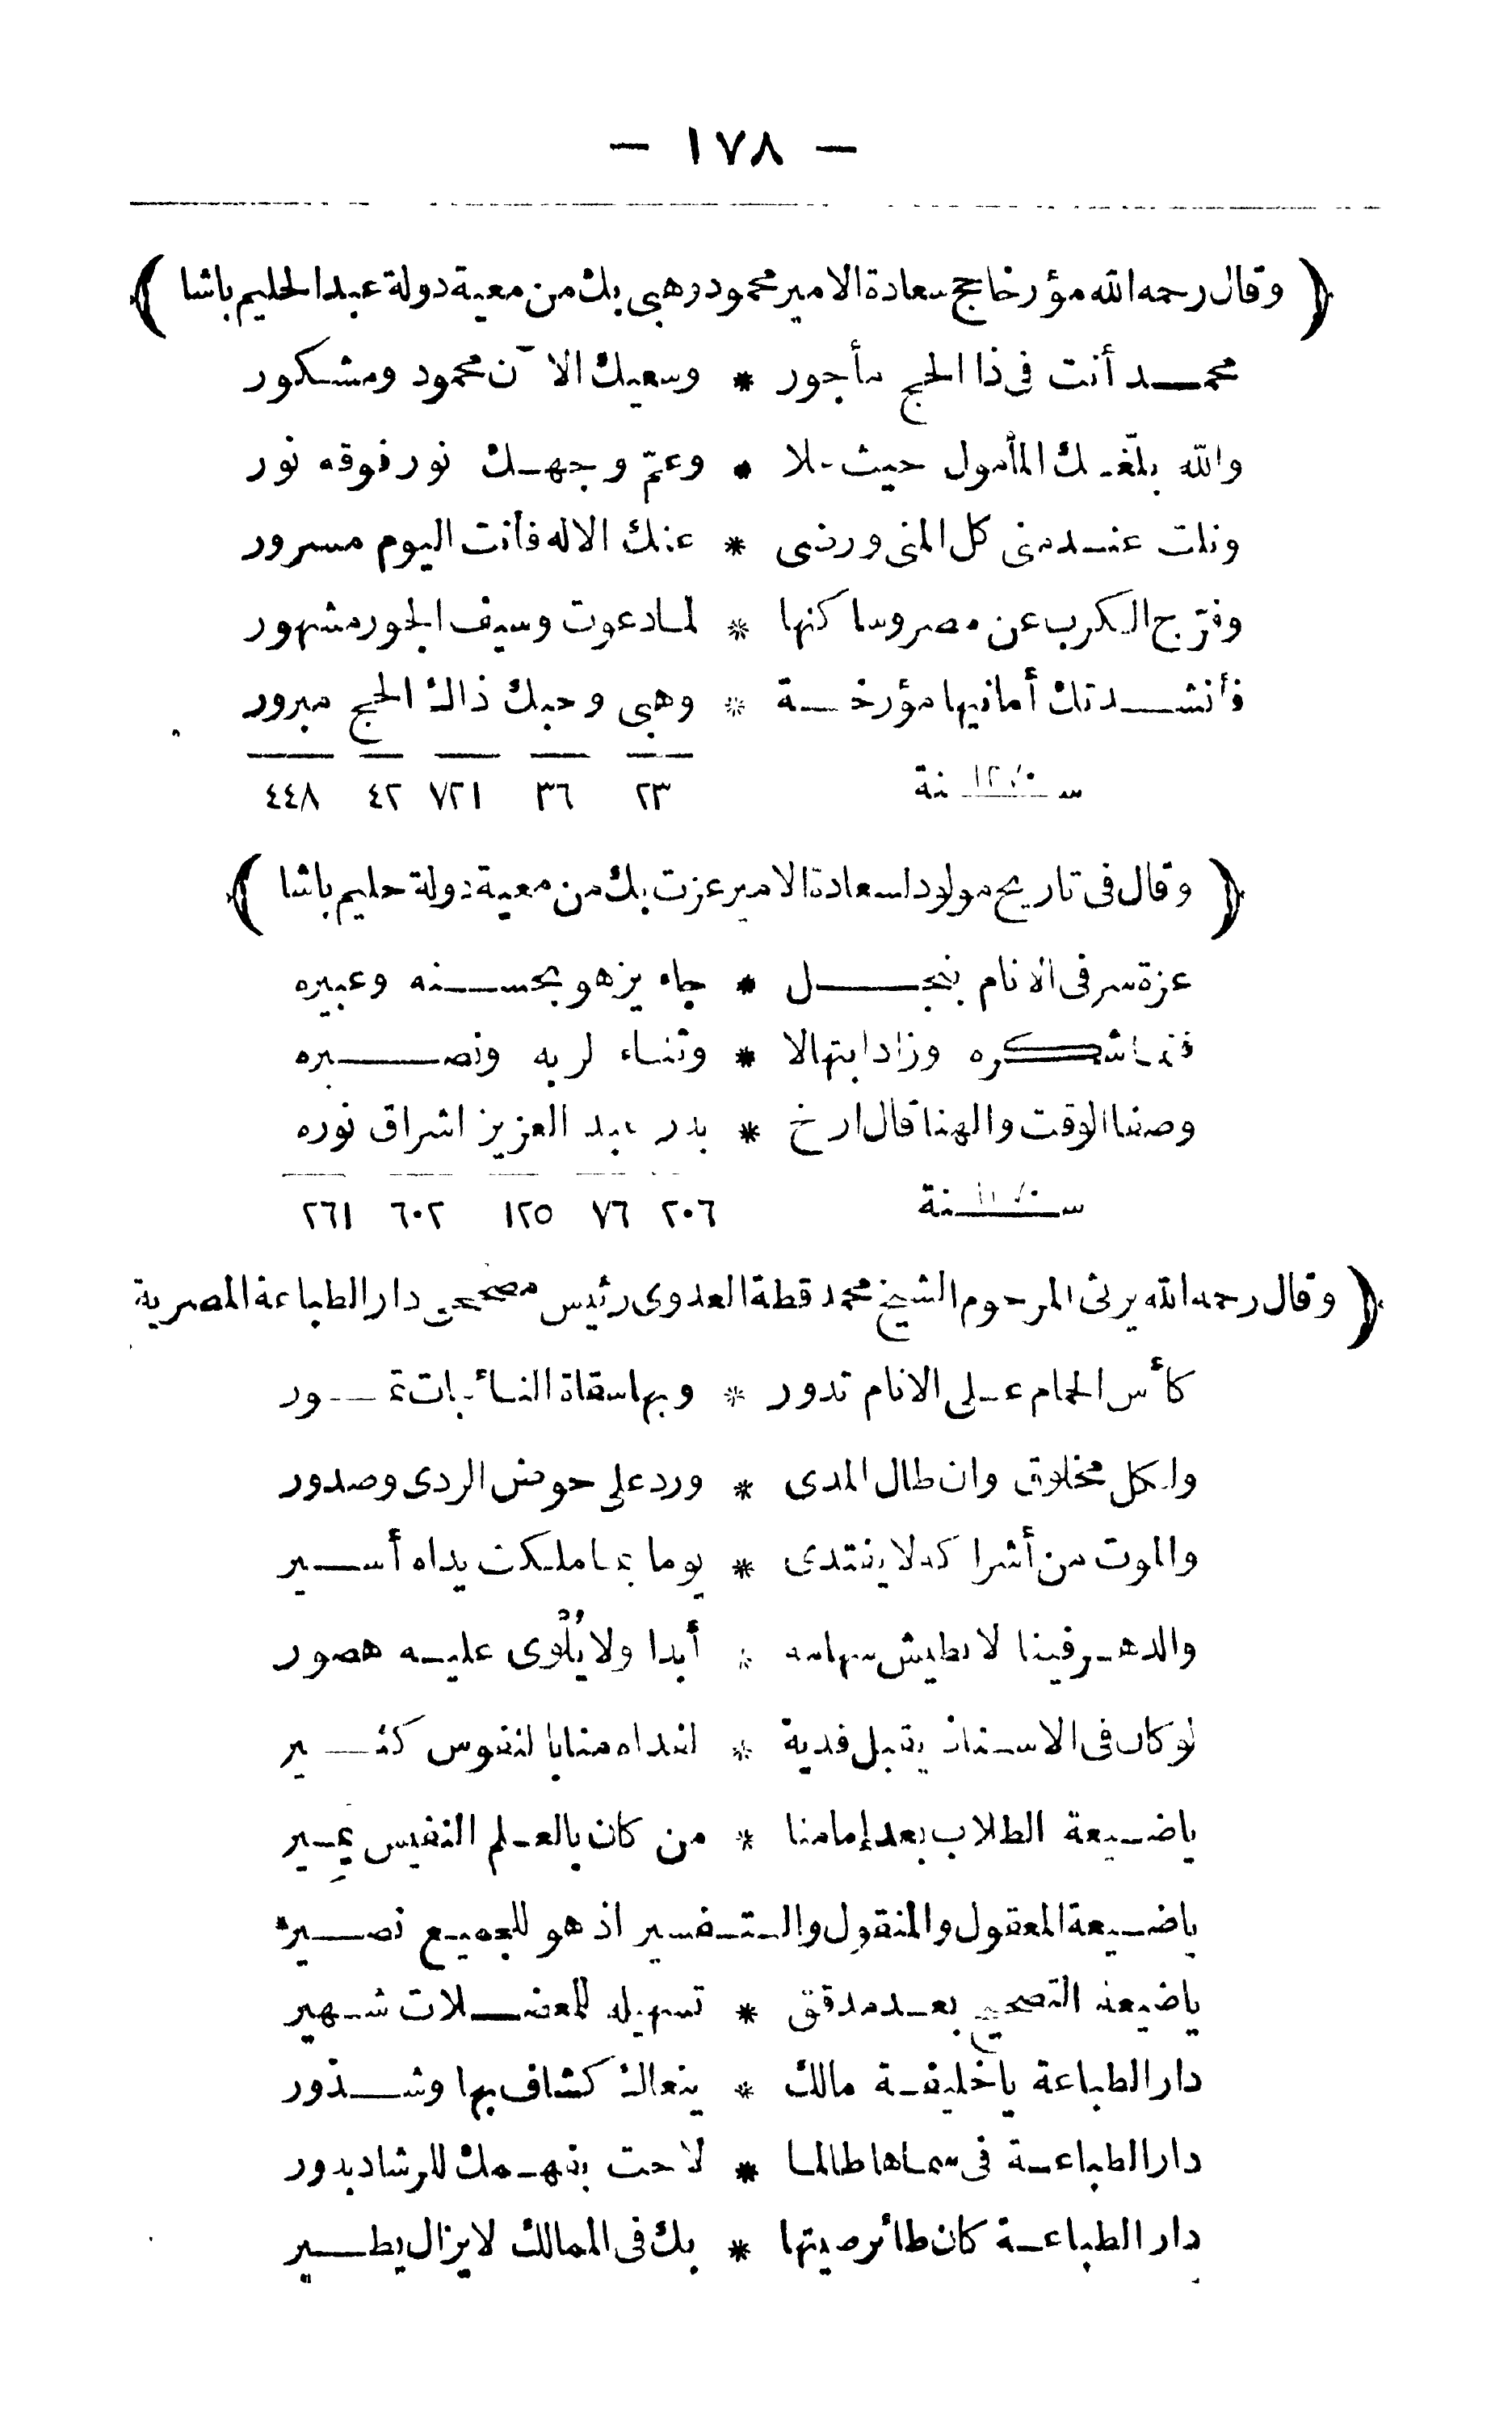 — ١٧٨ —
﴿ وقال رحمه الله مؤرخا حج سعادة الامير محمود وهبى بك من معية دولة عبد الحليم باشا ﴾
محمد أنت فى ذا الحج مأجور * وسعيك الآن محمود ومشكور
والله بلّغك المأمول حيث علا * وعمّ وجهك نور فوقه نور
ونلت عند منى كل المنى ورضى * عنك الاله فأنت اليوم مسرور
وفرّج الكرب عن مصر وساكنها * لما دعوت وسيف الجور مشهور
فأنشدتك أمانيها مؤرخة * وهبى وحبك ذاك الحج مبرور
سنة ٢٣ ٣٦ ٧٢١ ٤٢ ٤٤٨
﴿ وقال فى تاريخ مولود لسعادة الامير عزت بك من معية دولة حليم باشا ﴾
عزة سر فى الانام بنجل * جاء يزهو بحسنه وعبيره
فنما شكره وزاد ابتهالا * وثناء لربه ونصيره
وصفا الوقت والهنا قال ارخ * بدر عبد العزيز اشراق نوره
سنة ٢٠٦ ٧٦ ١٢٥ ٦٠٢ ٢٦١
﴿ وقال رحمه الله يرثى المرحوم الشيخ محمد قطة العدوى رئيس مصححى دار الطباعة المصرية
كأس الحمام على الانام تدور * وبها سقاة النائبات تمور
ولكل مخلوق وان طال المدى * ورد على حوض الردى وصدور
والموت من أشراكه لا يفتدى * يوما بما ملكت يداه أسير
والدهر فينا لا تطيش سهامه * أبدا ولا يُلْوى عليه هصور
لو كان فى الاستاذ يقبل فدية * لفداه منا يا لنفوس كثير
ياضيعة الطلاب بعد إمامنا * من كان بالعلم النفيس يمير
ياضيعة المعقول والمنقول والتفسير اذ هو للجميع نصير
ياضيعة التصحيح بعد مدقق * تسهيله للمعضلات شهير
دار الطباعة يا خليفة مالك * ينعاك كشاف بها وشذور
دار الطباعة فى سماها طالما * لاحت بفهمك للرشاد بدور
دار الطباعة كان طائر صيتها * بك فى الممالك لا يزال يطير